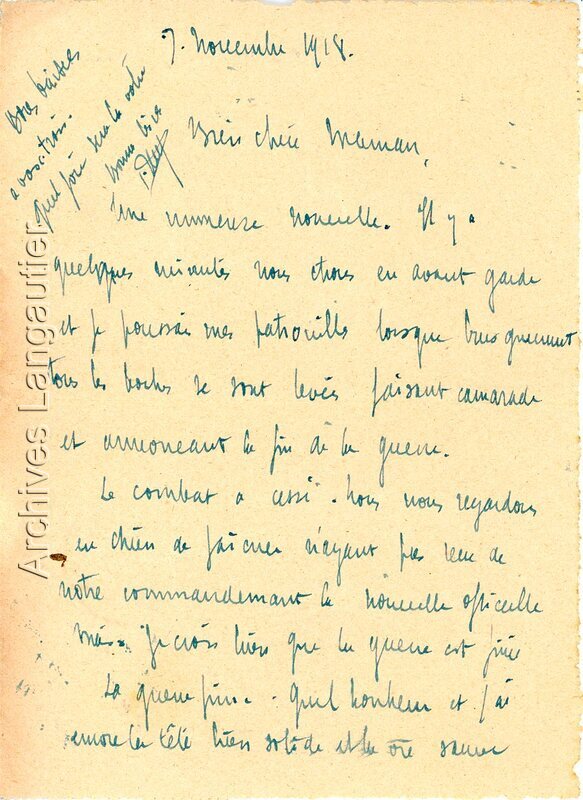 7. Novembre 1918.
Bien chère Maman,
Une immense nouvelle. Il y a
quelques minutes nous étions en avant garde
et je poussais mes patrouilles lorsque brusquement
tous les boches se sont levés faisant camarade
et annoncant la fin de la guerre.
Le combat a cessé. Nous nous regardons
en chien de faience n'ayant pas recu de
notre commandement la nouvelle officielle
mais je crois bien que la guerre est finie
La guerre finie. Quel bonheur et j'ai
encore la tête bien solide et la vie sauve
Bons baisers
a vous trois.
Quel joie sera la votre
Archives Langautier